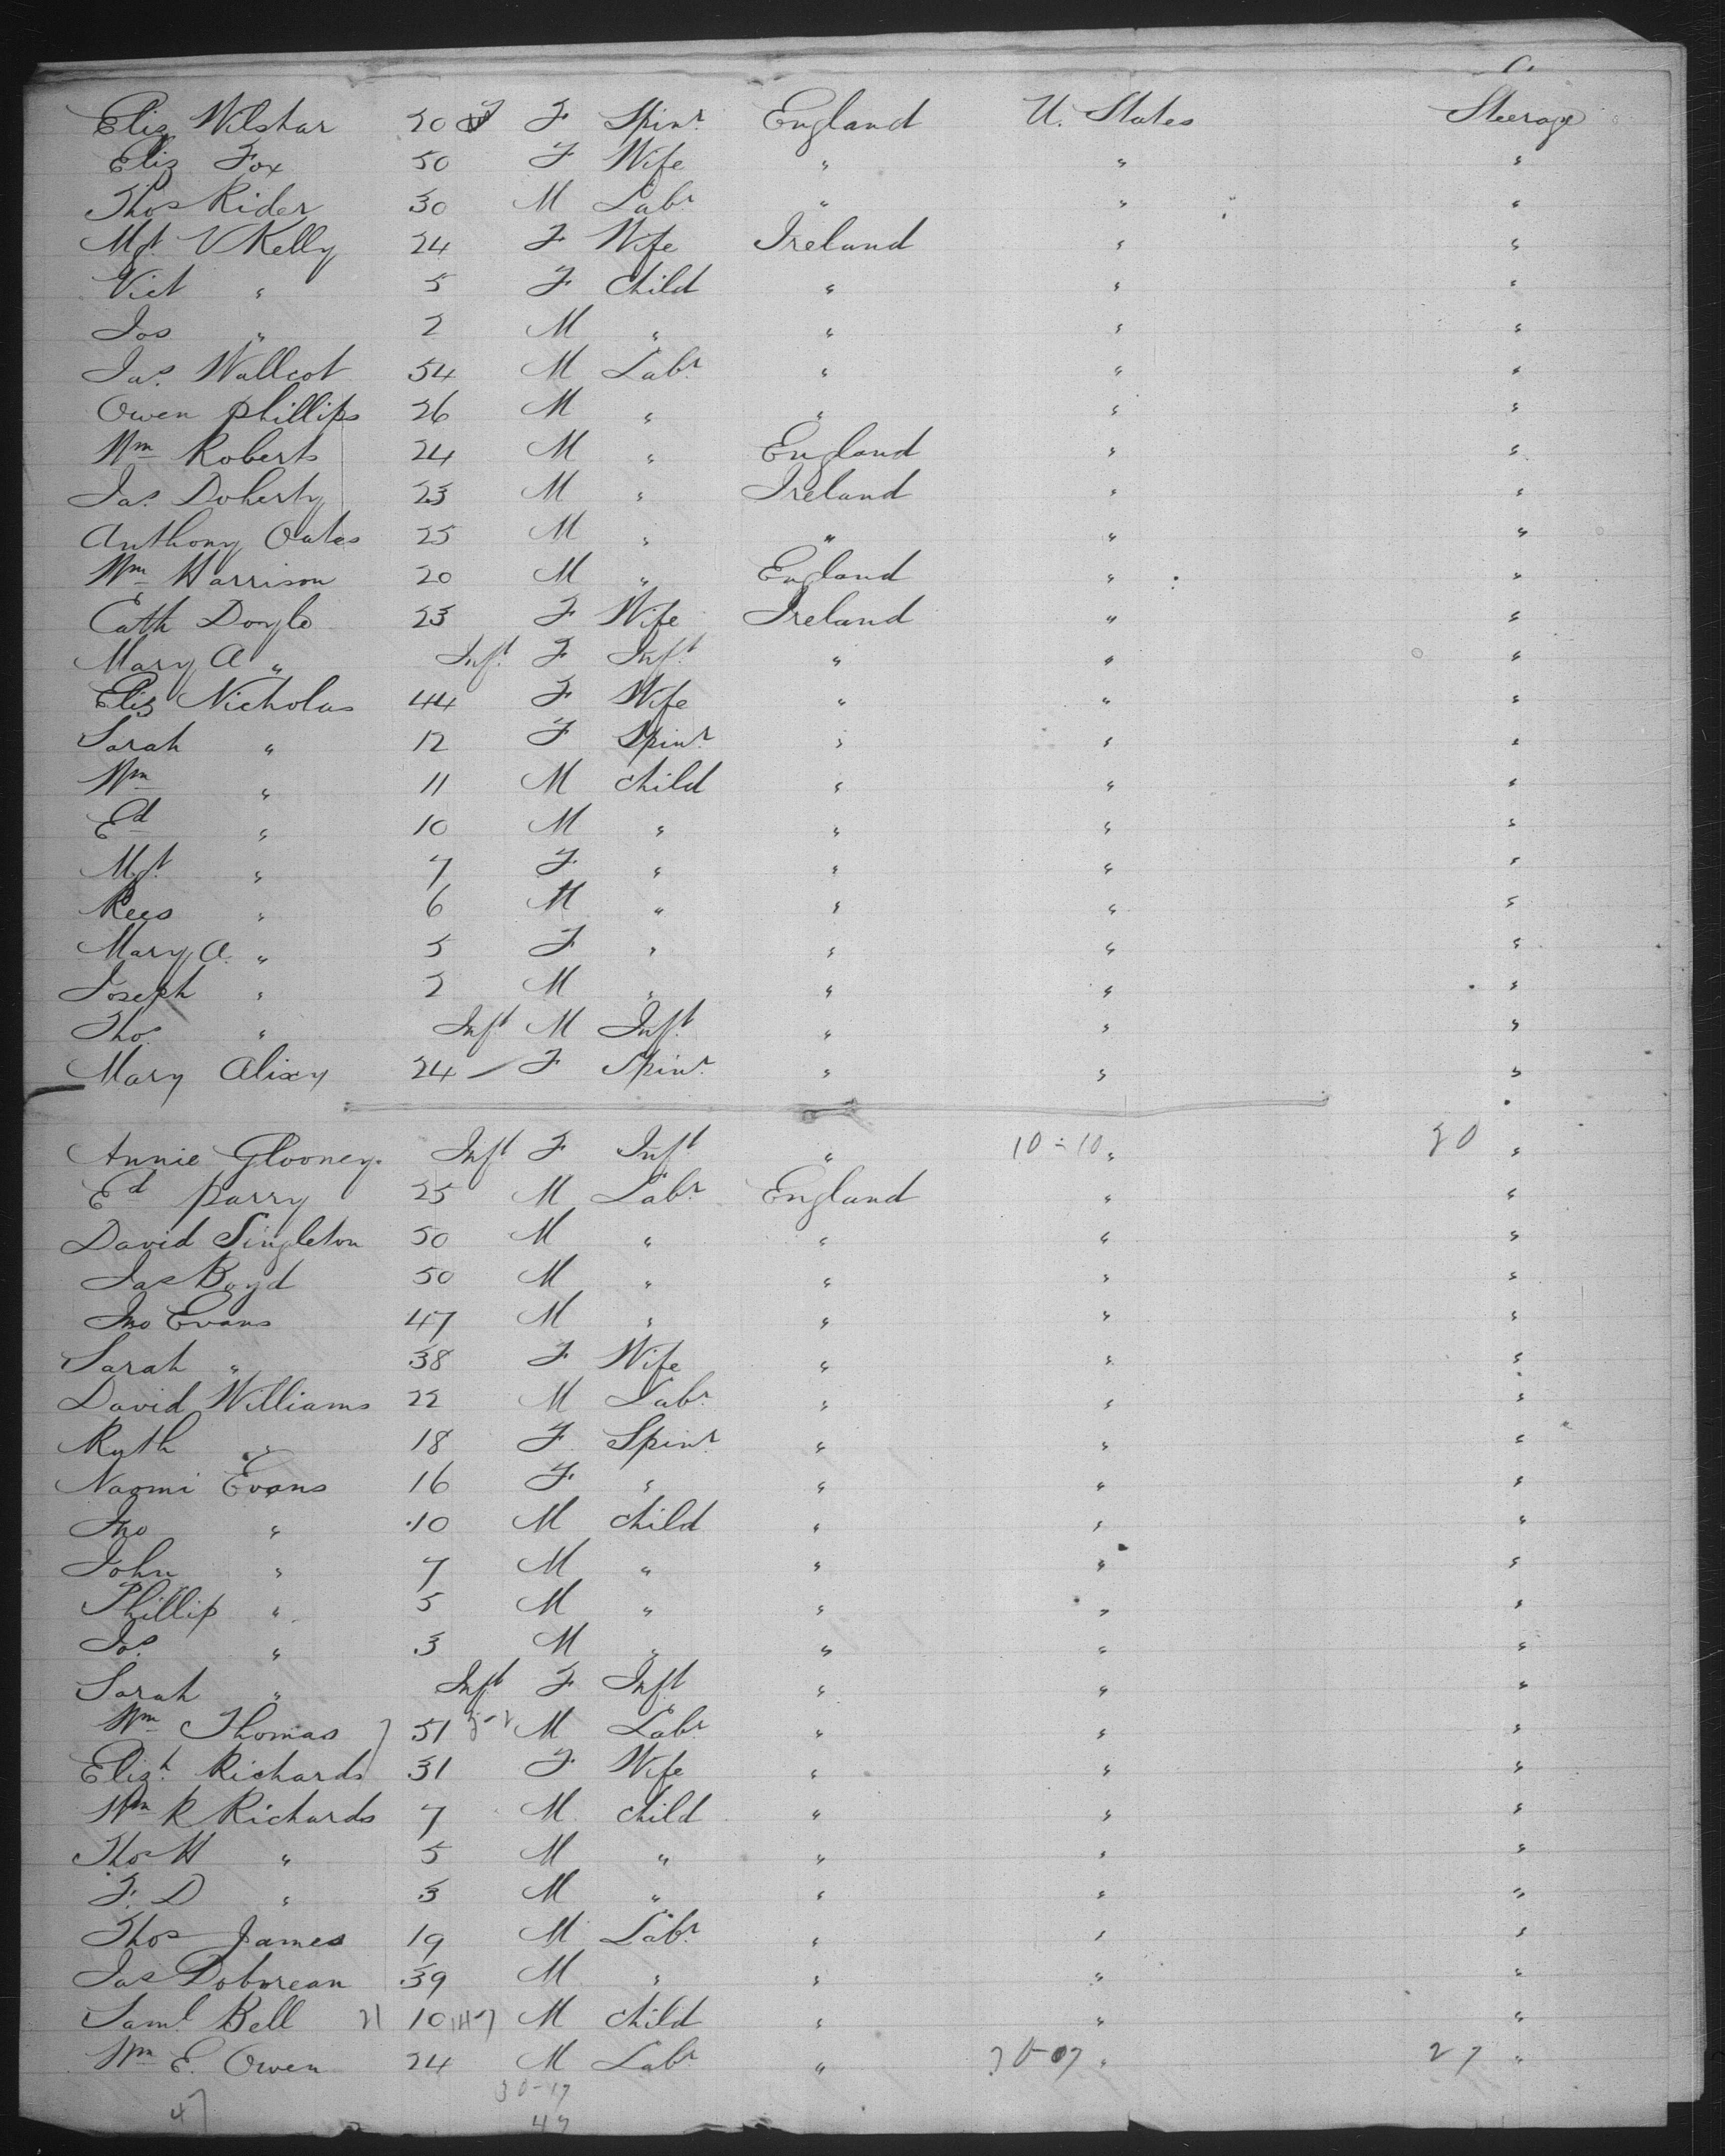 Eliz Wilshar 20 F Spinr. England U. States Steerage
Eliz Fox 50 F Wife " " "
Thos Rider 30 M Labr " " "
Mgt. V Kelly 24 F Wife Ireland " "
Vict " 5 F Child " " "
Jos " 2 M " " " "
Jas. Wallcot 54 M Labr " " "
Owen Phillips 26 M " " " "
Wm Roberts 24 M " England " "
Jas. Doherty 23 M " Ireland " "
Anthony Oates 25 M " " " "
Wm Harrison 20 M " England " "
Cath Doyle 23 F Wife Ireland " "
Mary A " Inft F Inft " " "
Eliz Nicholas 44 F Wife " " "
Sarah " 12 F Spinr. " " "
Wm " 11 M Child " " "
Ed " 10 M " " " "
Mgt. " 7 F " " " "
Rees " 6 M " " " "
Mary A. " 5 F " " " "
Joseph " 2 M " " " "
Tho. " Inft M Inft " " "
Mary Alixy 24 F Spinr. " " "
Annie Glooney. Inft F Inft " 10-10 " "
Ed Parry 25 M Labr England " "
David Singleton 50 M " " " "
Jas Boyd 50 M " " " "
Jno Evans 47 M " " " "
Sarah " 38 F Wife " " "
David Williams 22 M Labr " " "
Ruth " 18 F Spinr. " " "
Naomi Evans 16 F " " " "
Jno " 10 M Child " " "
John " 7 M " " " "
Phillip " 5 M " " " "
Jos. " 3 M " " " "
Sarah " Inft F Inft " " "
Wm Thomas 51 M Labr " " "
Elizh. Richards 31 F Wife " " "
Wm R Richards 7 M Child " " "
Thos H " 5 M " " " "
F. D " 3 M " " " "
Thos James 19 M Labr " " "
Jas Doborean 39 M " " " "
Saml Bell 21 10 M Child " " "
Wm E. Owen 24 M Labr " " 27 "
30-17
47 47